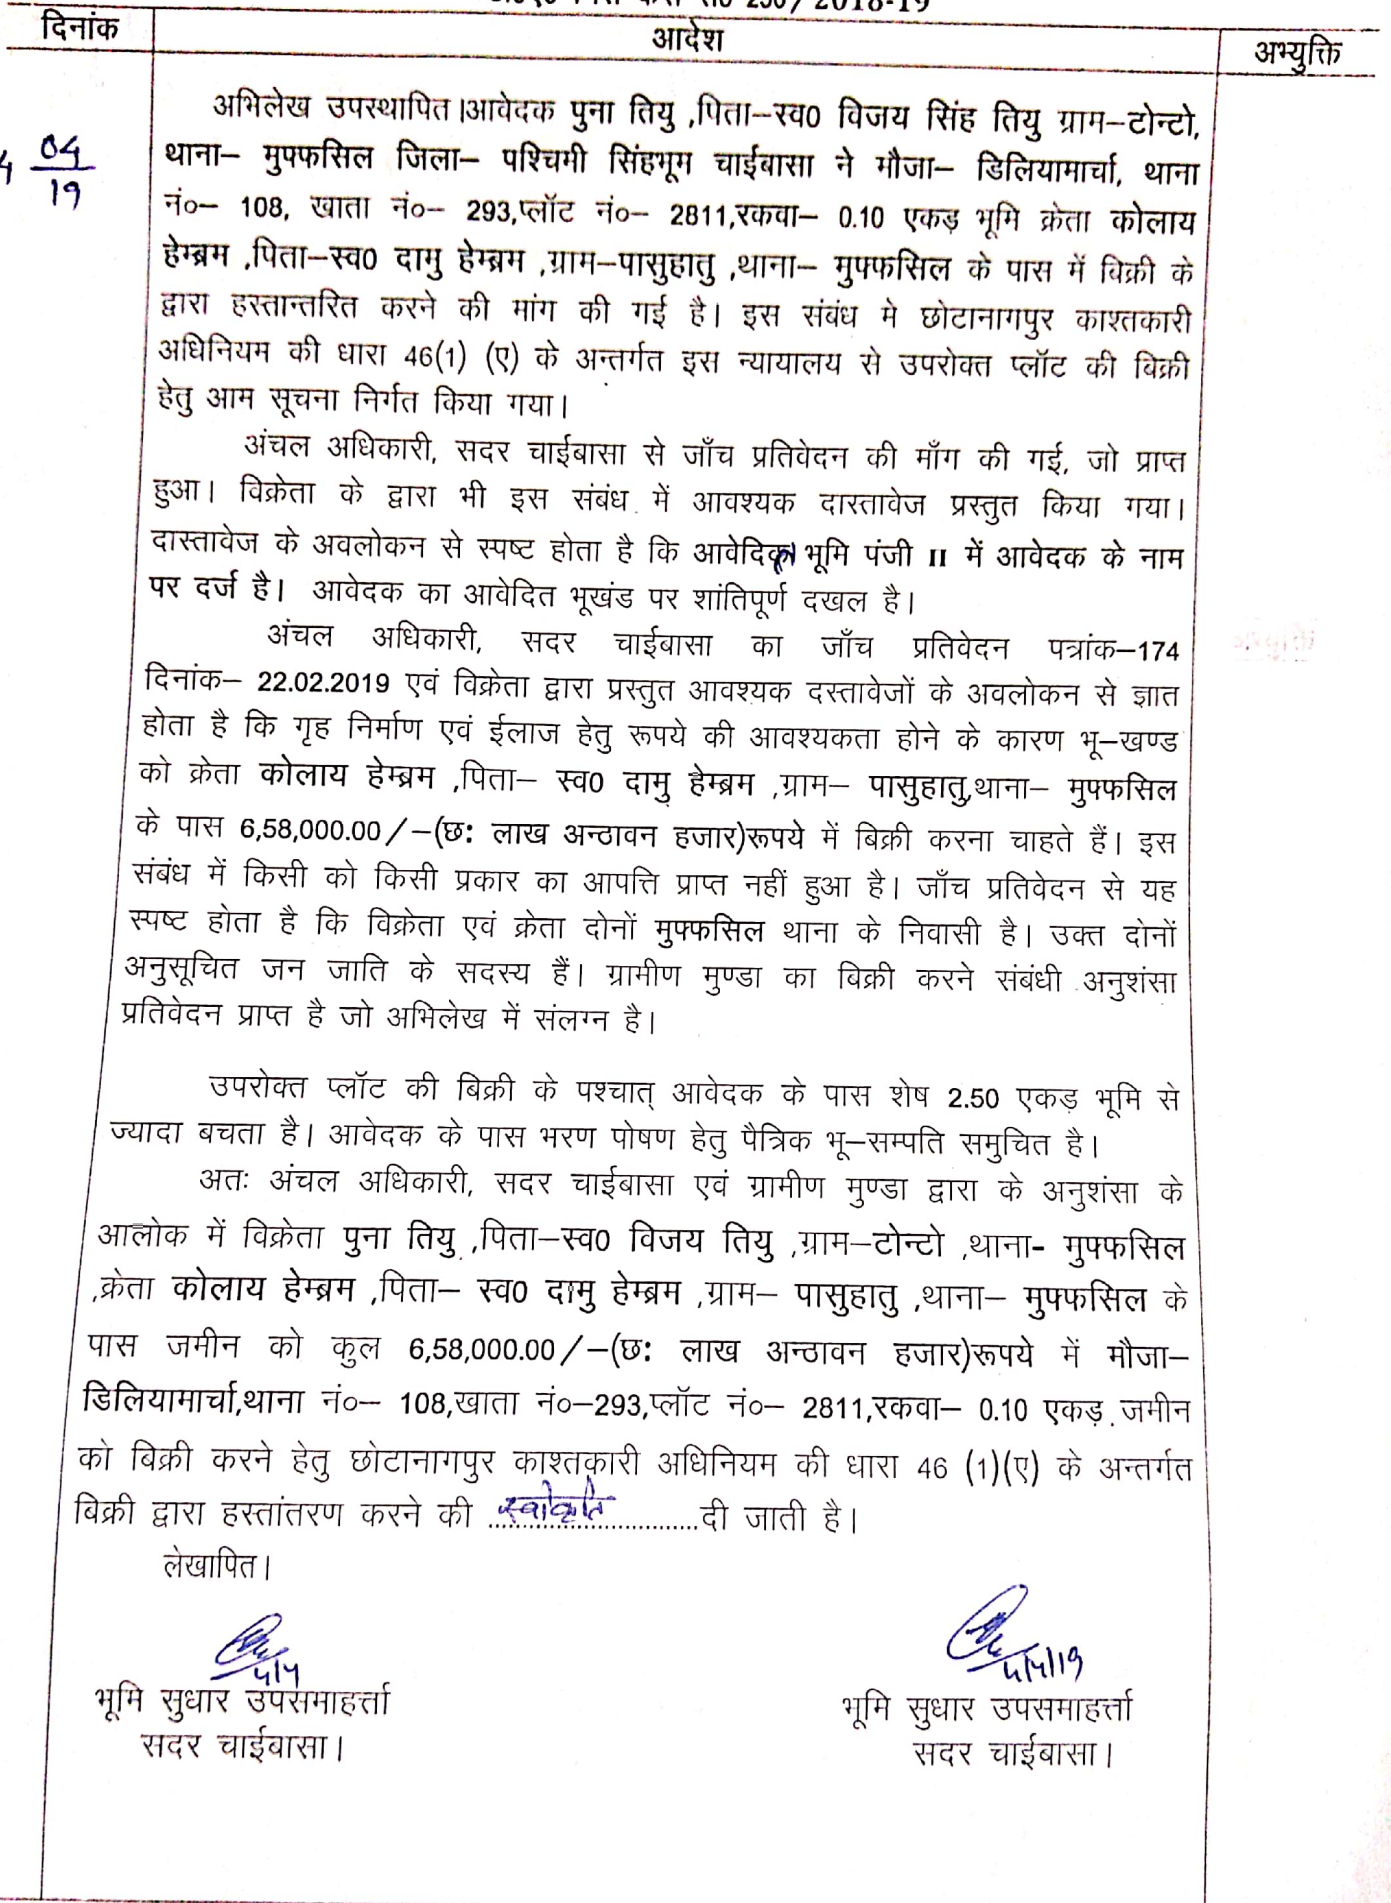 2018-19
दिनांक
आदेश
अभ्युक्ति
04
19
अभिलेख उपस्थापित।आवेदक पुना तियु ,पिता–स्व0 विजय सिंह तियु ग्राम–टोन्टो,
थाना– मुफ्फसिल जिला– पश्चिमी सिंहभूम चाईबासा ने मौजा– डिलियामार्चा, थाना
नं०– 108, खाता नं०– 293,प्लॉट नं०– 2811,रकवा– 0.10 एकड़ भूमि क्रेता कोलाय
हेम्ब्रम ,पिता–स्व0 दामु हेम्ब्रम ,ग्राम–पासुहातु ,थाना– मुफ्फसिल के पास में बिक्री के
द्वारा हस्तान्तरित करने की मांग की गई है। इस संबंध मे छोटानागपुर काश्तकारी
अधिनियम की धारा 46(1) (ए) के अन्तर्गत इस न्यायालय से उपरोक्त प्लॉट की बिक्री
हेतु आम सूचना निर्गत किया गया।
अंचल अधिकारी, सदर चाईबासा से जाँच प्रतिवेदन की माँग की गई, जो प्राप्त
हुआ। विक्रेता के द्वारा भी इस संबंध में आवश्यक दास्तावेज प्रस्तुत किया गया।
दास्तावेज के अवलोकन से स्पष्ट होता है कि भूमि पंजी II में आवेदक के नाम
पर दर्ज है। आवेदक का आवेदित भूखंड पर शांतिपूर्ण दखल है।
अंचल अधिकारी, सदर चाईबासा का जाँच प्रतिवेदन पत्रांक–174
दिनांक– 22.02.2019 एवं विक्रेता द्वारा प्रस्तुत आवश्यक दस्तावेजों के अवलोकन से ज्ञात
होता है कि गृह निर्माण एवं ईलाज हेतु रूपये की आवश्यकता होने के कारण भू–खण्ड
को क्रेता कोलाय हेम्ब्रम ,पिता– स्व0 दामु हेम्ब्रम ,ग्राम– पासुहातु,थाना– मुफ्फसिल
के पास 6,58,000.00/–(छः लाख अन्ठावन हजार)रूपये में बिक्री करना चाहते हैं। इस
संबंध में किसी को किसी प्रकार का आपत्ति प्राप्त नहीं हुआ है। जाँच प्रतिवेदन से यह
स्पष्ट होता है कि विक्रेता एवं क्रेता दोनों मुफ्फसिल थाना के निवासी है। उक्त दोनों
अनुसूचित जन जाति के सदस्य हैं। ग्रामीण मुण्डा का बिक्री करने संबंधी अनुशंसा
प्रतिवेदन प्राप्त है जो अभिलेख में संलग्न है।
उपरोक्त प्लॉट की बिक्री के पश्चात् आवेदक के पास शेष 2.50 एकड़ भूमि से
ज्यादा बचता है। आवेदक के पास भरण पोषण हेतु पैत्रिक भू–सम्पति समुचित है।
अतः अंचल अधिकारी, सदर चाईबासा एवं ग्रामीण मुण्डा द्वारा के अनुशंसा के
आलोक में विक्रेता पुना तियु ,पिता–स्व0 विजय तियु ,ग्राम–टोन्टो ,थाना- मुफ्फसिल
,क्रेता कोलाय हेम्ब्रम ,पिता– स्व0 दामु हेम्ब्रम ,ग्राम– पासुहातु ,थाना– मुफ्फसिल के
पास जमीन को कुल 6,58,000.00/–(छः लाख अन्ठावन हजार)रूपये में मौजा–
डिलियामार्चा,थाना नं०– 108,खाता नं०–293,प्लॉट नं०– 2811,रकवा– 0.10 एकड़ जमीन
को बिक्री करने हेतु छोटानागपुर काश्तकारी अधिनियम की धारा 46 (1)(ए) के अन्तर्गत
बिक्री द्वारा हस्तांतरण करने की स्वीकृति दी जाती है।
लेखापित।
4/4
4/4/19
भूमि सुधार उपसमाहर्त्ता
भूमि सुधार उपसमाहर्त्ता
सदर चाईबासा।
सदर चाईबासा।